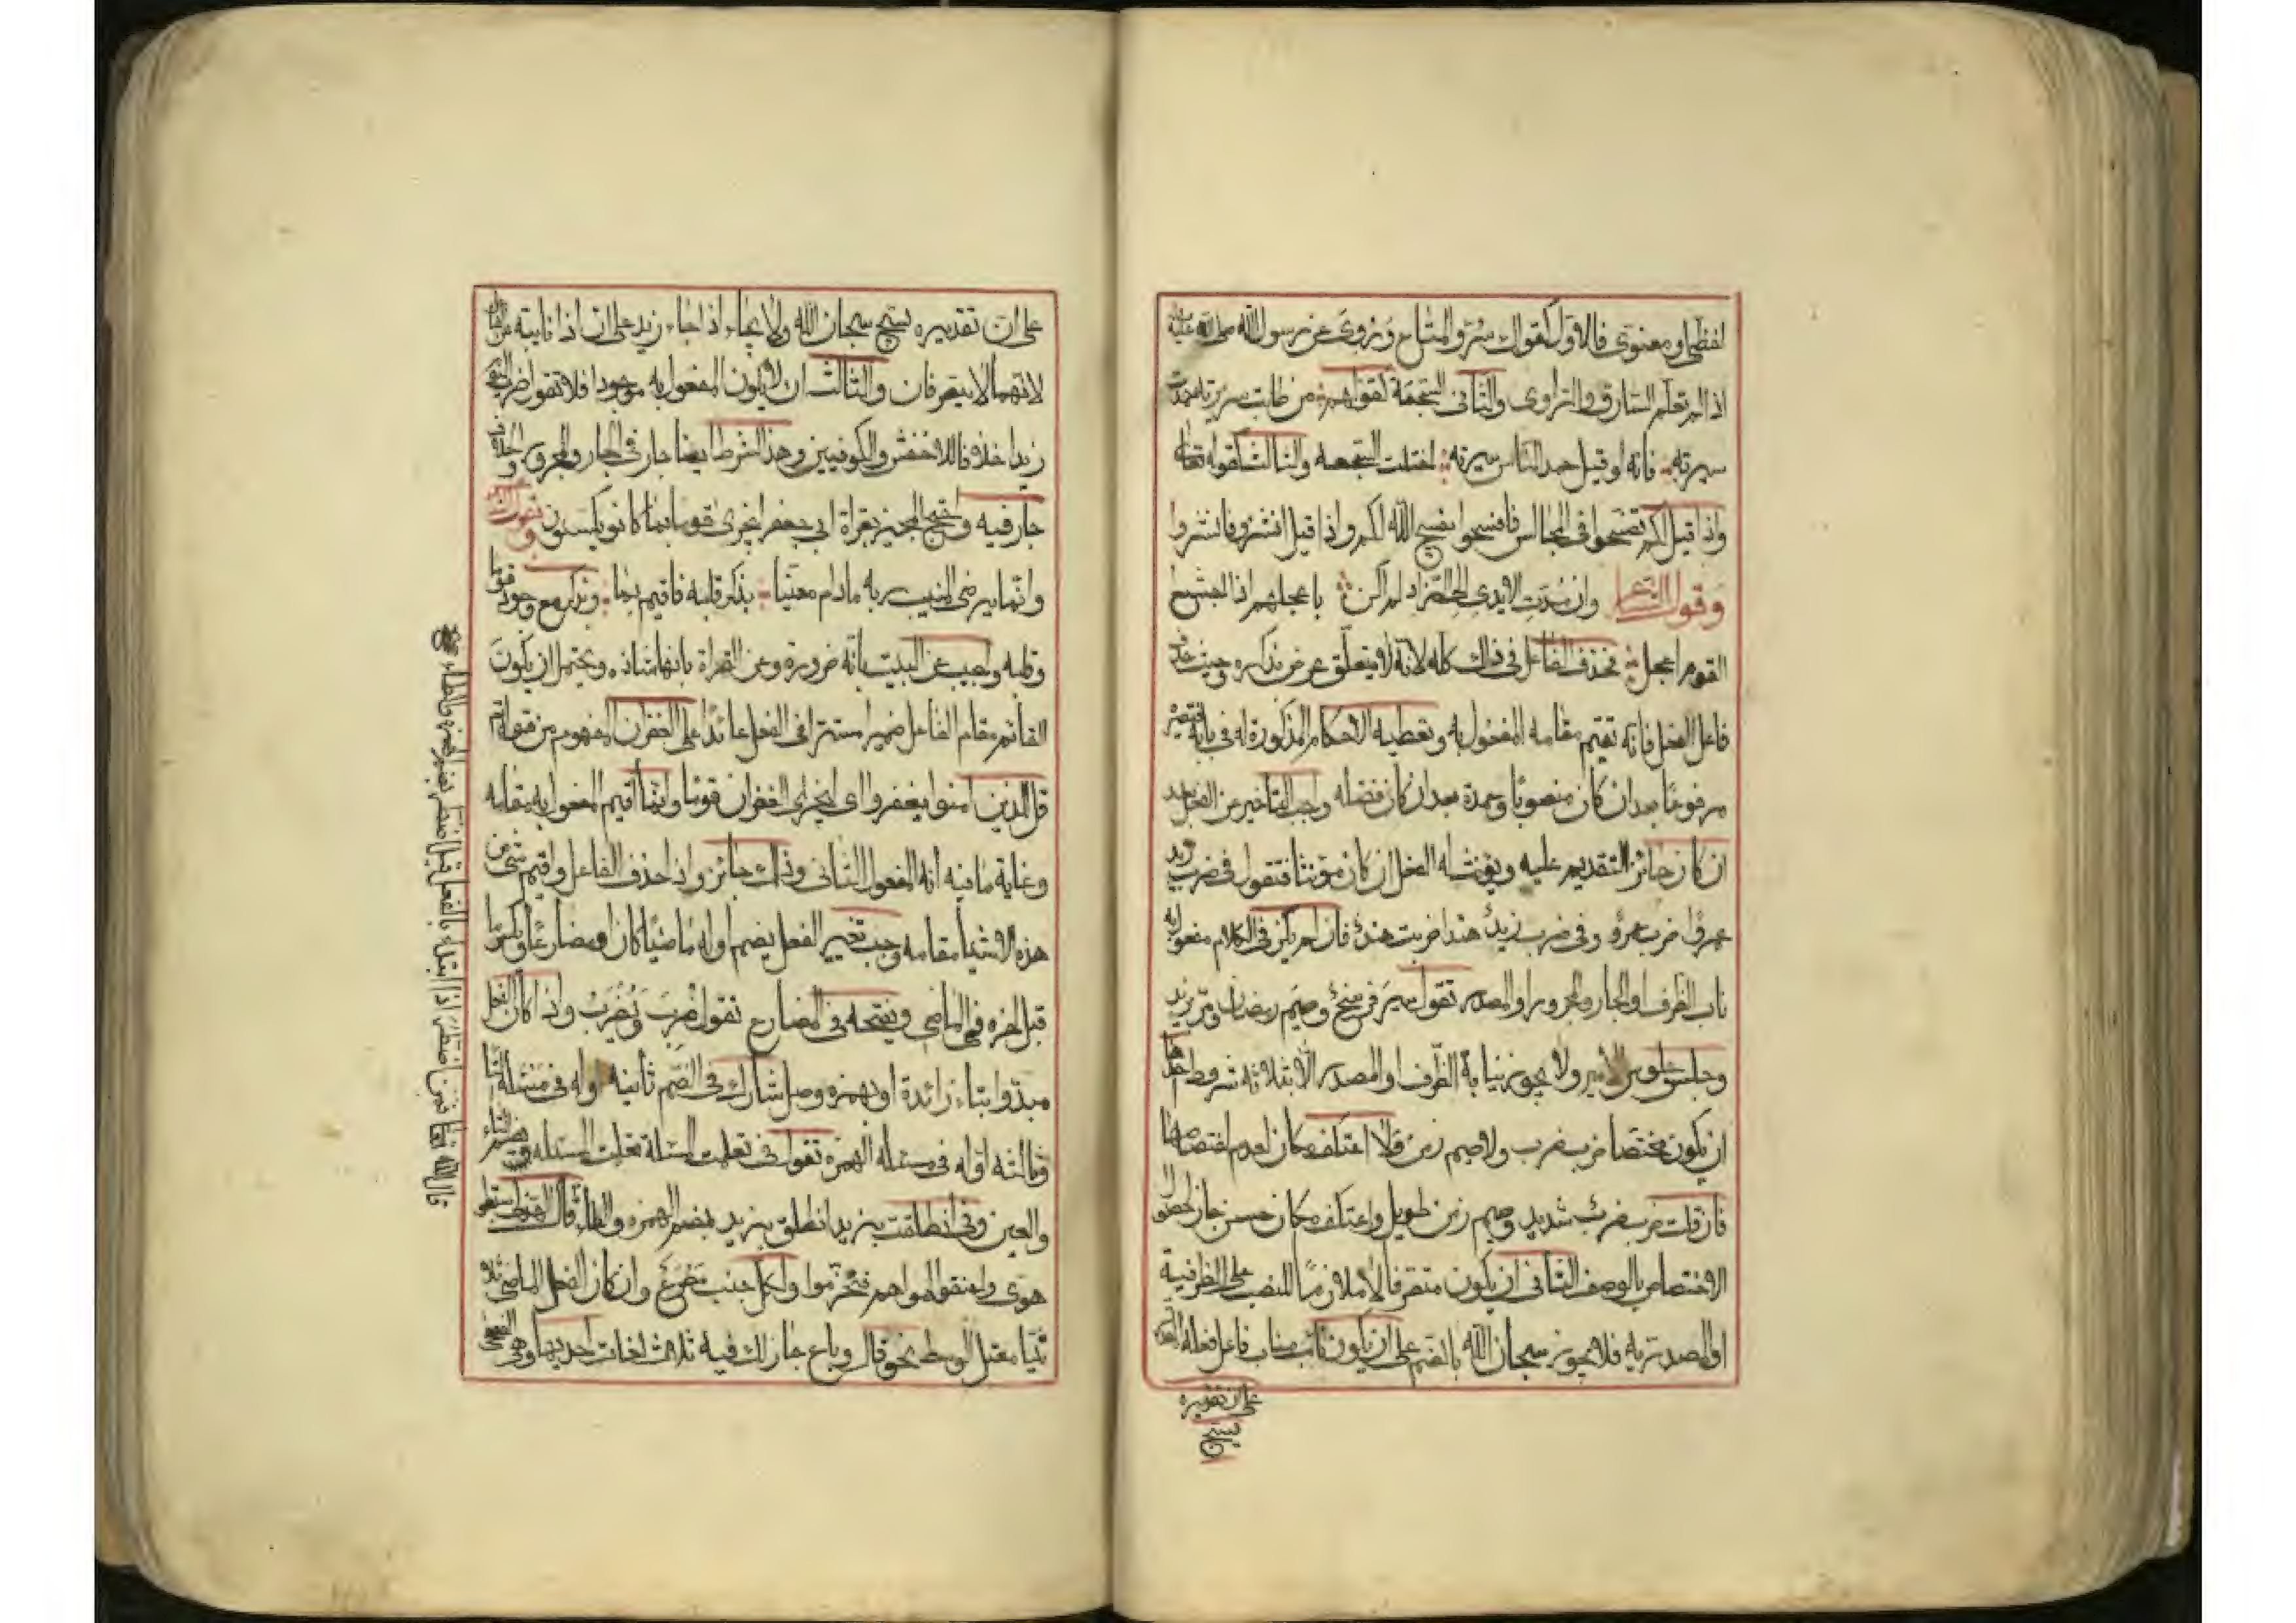 لفظي او معنوي فالاول كقولك سرق المتاع وروي عن رسول الله صلى الله عليه
اذا لم تعلم السارق والراوي والثاني السجعة كقولهم من طابت سريرته حمدت
سيرته فانه لو قيل حمد الناس سيرته اختلت السجعة والثالث كقوله تعالى
واذا قيل لكم تفسحوا في المجالس فافسحوا يفسح الله لكم واذا قيل انشزوا فانشزوا
وقول الشاعر وان مدت الايدي الى الزاد لم اكن باعجلهم اذ اجشع
القوم اعجل فحذف الفاعل في ذلك كله لانه لا يتعلق غرض بذكره وحيث حذف
فاعل الفعل فانه تقيم مقامه المفعول به وتعطيه الاحكام المذكورة له في بابه فتصيره
مرفوعا بعد ان كان منصوبا وعمدة بعد ان كان فضله واجب التاخير عن الفعل بعد
ان كان جائز التقديم عليه ويؤنث له الفعل ان كان مؤنثا فتقول في ضرب زيد
عمروا ضرب عمرو وفي ضرب زيد هندا ضربت هند فان لم يكن في الكلام مفعول به
ناب الظرف او الجار والمجرور او المصدر تقول سير فرسخ وصيم رمضان ومر بزيد
وجلس جلوس الامير ولا يجوز نيابة الظرف او المصدر الا بثلاثة شروط احدها
ان يكون مختصا ضرب ضرب ولا صيم زمن ولا اعتكف مكان لعدم اختصاصها
فان قلت ضرب ضرب شديد وصيم زمن طويل واعتكف مكان حسن جاز لحصول
الاختصاص بالوصف الثاني ان يكون متصرفا لا ملازما للنصب على الظرفية
او المصدرية فلا يجوز سبحان الله بالضم على ان يكون نائب مناب فاعل فعله
على ان تقديره
يسبح
على ان تقديره يسبح سبحان الله ولا يجاء اذا جاء زيد على ان اذا نايبة
لانهما لا يتصرفان والثالث ان لا يكون المفعول به موجودا فلا تقول ضرب اليوم
زيدا خلافا للاخفش والكوفيين وهذا الشرط ايضا جار في الجار والمجرور والخلاف
جار فيه واحتج المجيز بقراة ابي جعفر ليجزى قوما بما كانوا يكسبون وبقول الشاعر
وانما يرضي المنيب ربه ما دام معنيا بذكر قلبه فاقيم بما وبذكر مع وجود قوما
وقلبه واجيب عن البيت بانه ضرورة وعن القراة بانها شاذه ويحتمل ان يكون
القائم مقام الفاعل ضمير مستترا في الفعل عائدا على الغفران المفهوم من قوله
قل للذين امنوا يغفروا اي ليجزى الغفران قوما وانما اقيم المفعول به مقامه
وغاية ما فيه انه المفعول الثاني وذلك جائز واذا حذف الفاعل واقيم شي من
هذه الاشيا مقامه وجب تغيير الفعل بضم اوله ماضيا كان او مضارعا وبكسر ما
قبل اخره في الماضي وبفتحه في المضارع تقول ضرب ويضرب واذا كان الفعل
مبتدوا بتاء زائدة او بهمزه وصل شارك في الضم ثانيه اوله في مسئله التا
وثالثه اوله في مسئله الهمزه تقول في تعلمت المسئلة تعلمت المسئله بضم التاء
والعين وفي انطلقت بزيد انطلق بزيد بضم الهمزه والطاء قال
هوي واعنقوا لهواهم فتخرموا ولكل جنب مصرع وان كان الفعل الماضي ثلا
ثيا معتل الوسط نحو قال وباع جاز لك فيه ثلاث لغات احديها وهي الفصحى